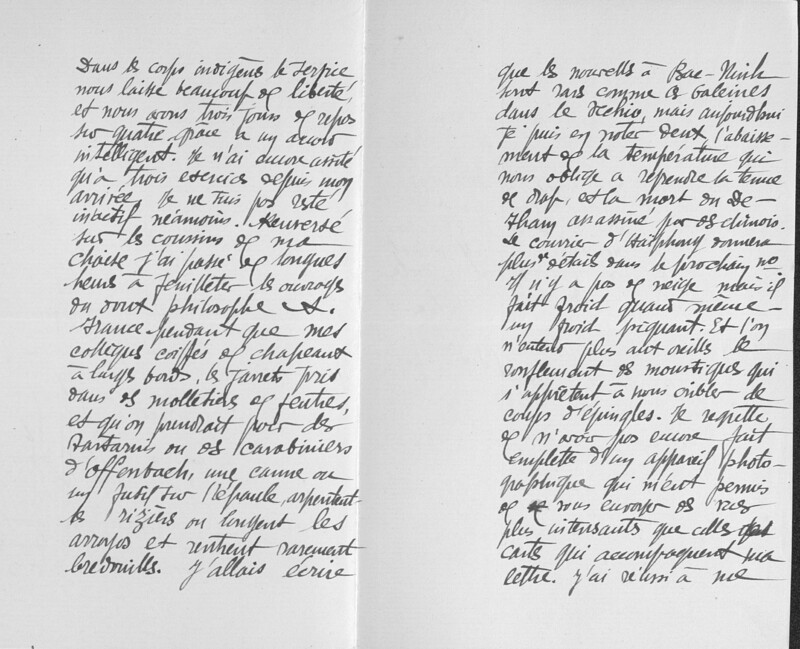 Dans les corps indigènes le service
nous laisse beaucoup de liberté,
et nous avons trois jours de repos
sur quatre grâce à un accord
intelligent. Je n'ai encore assisté
qu'à trois exercices depuis mon
arrivée. Je ne suis pas resté
inactif néamoins. Renversé
sur les coussins de ma
chaise j'ai passé de longues
heures à feuilleter les ouvrages
du doux philosophe A.
France pendant que mes
collègues coiffés de chapeaux
à larges bords, les jarrets pris
dans des molletières de feutres,
et qu'on prendrait pour des
Tartarins ou des carabiniers
d'Offenbach, une canne ou
un fusil sur l'épaule, arpentent
les rizières ou longent les
arroyos et rentrent rarement
bredouilles. J'allais écrire
que les nouvelles à Bac-Ninh
sont rares comme les baleines
dans le Tchio, mais aujourd'hui
je puis en noter deux l'abaisse-
ment de la température qui
nous oblige à reprendre la tenue
de drap, et la mort du De-
Tham assassiné par des chinois.
Le courrier d'Haiphong donnera
plus de détails dans le prochain no
Il n'y a pas de neige mais il
fait froid quand même -
un froid piquant. Et l'on
n'entend plus aux oreilles le
ronflement des moustiques qui
s'apprêtent à nous cribler de
coups d'épingles. Je regrette
de n'avoir pas encore fait
emplette d'un appareil photo-
graphique qui m'eut permis
de vous envoyer des vues
plus intéressantes que celles des
cartes qui accompagnent ma
lettre. J'ai réussi à me